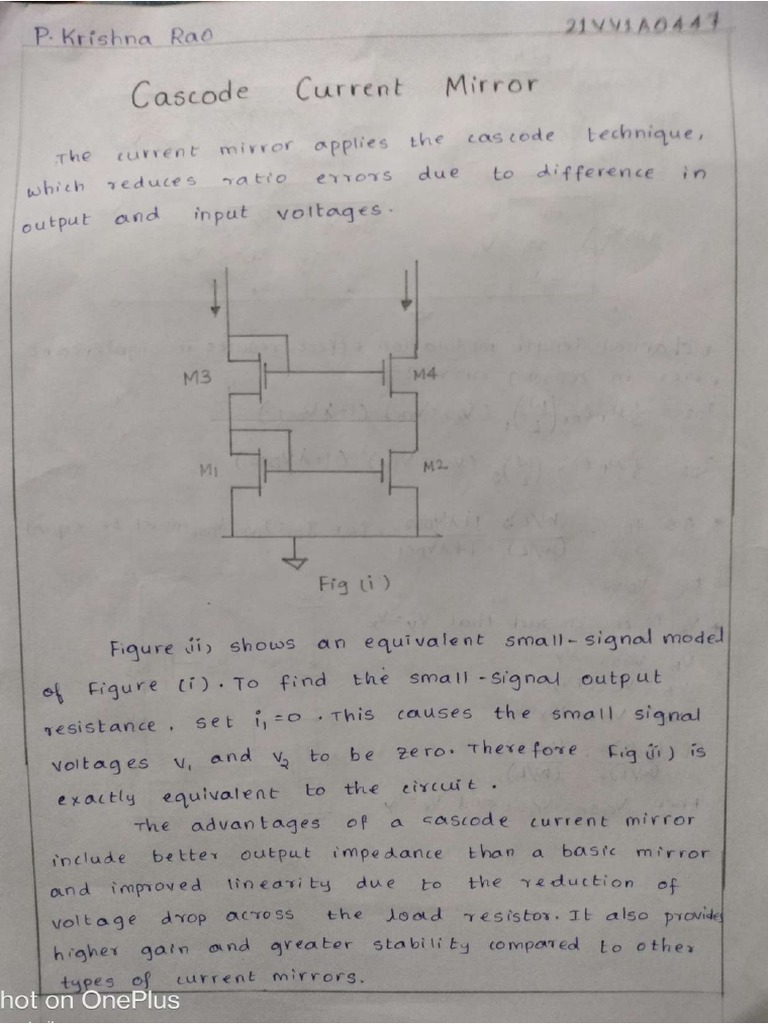 P. Krishna Rao
21VV1A0447
Cascode Current Mirror
The current mirror applies the cascode technique,
which reduces ratio errors due to difference in
output and input voltages.
M3
M4
M1
M2
Fig (i)
Figure (ii) shows an equivalent small-signal model
of Figure (i). To find the small-signal output
resistance, set i₁=0. This causes the small signal
voltages v₁ and v₂ to be zero. Therefore Fig (ii) is
exactly equivalent to the circuit.
The advantages of a cascode current mirror
include better output impedance than a basic mirror
and improved linearity due to the reduction of
voltage drop across the load resistor. It also provides
higher gain and greater stability compared to other
types of current mirrors.
hot on OnePlus